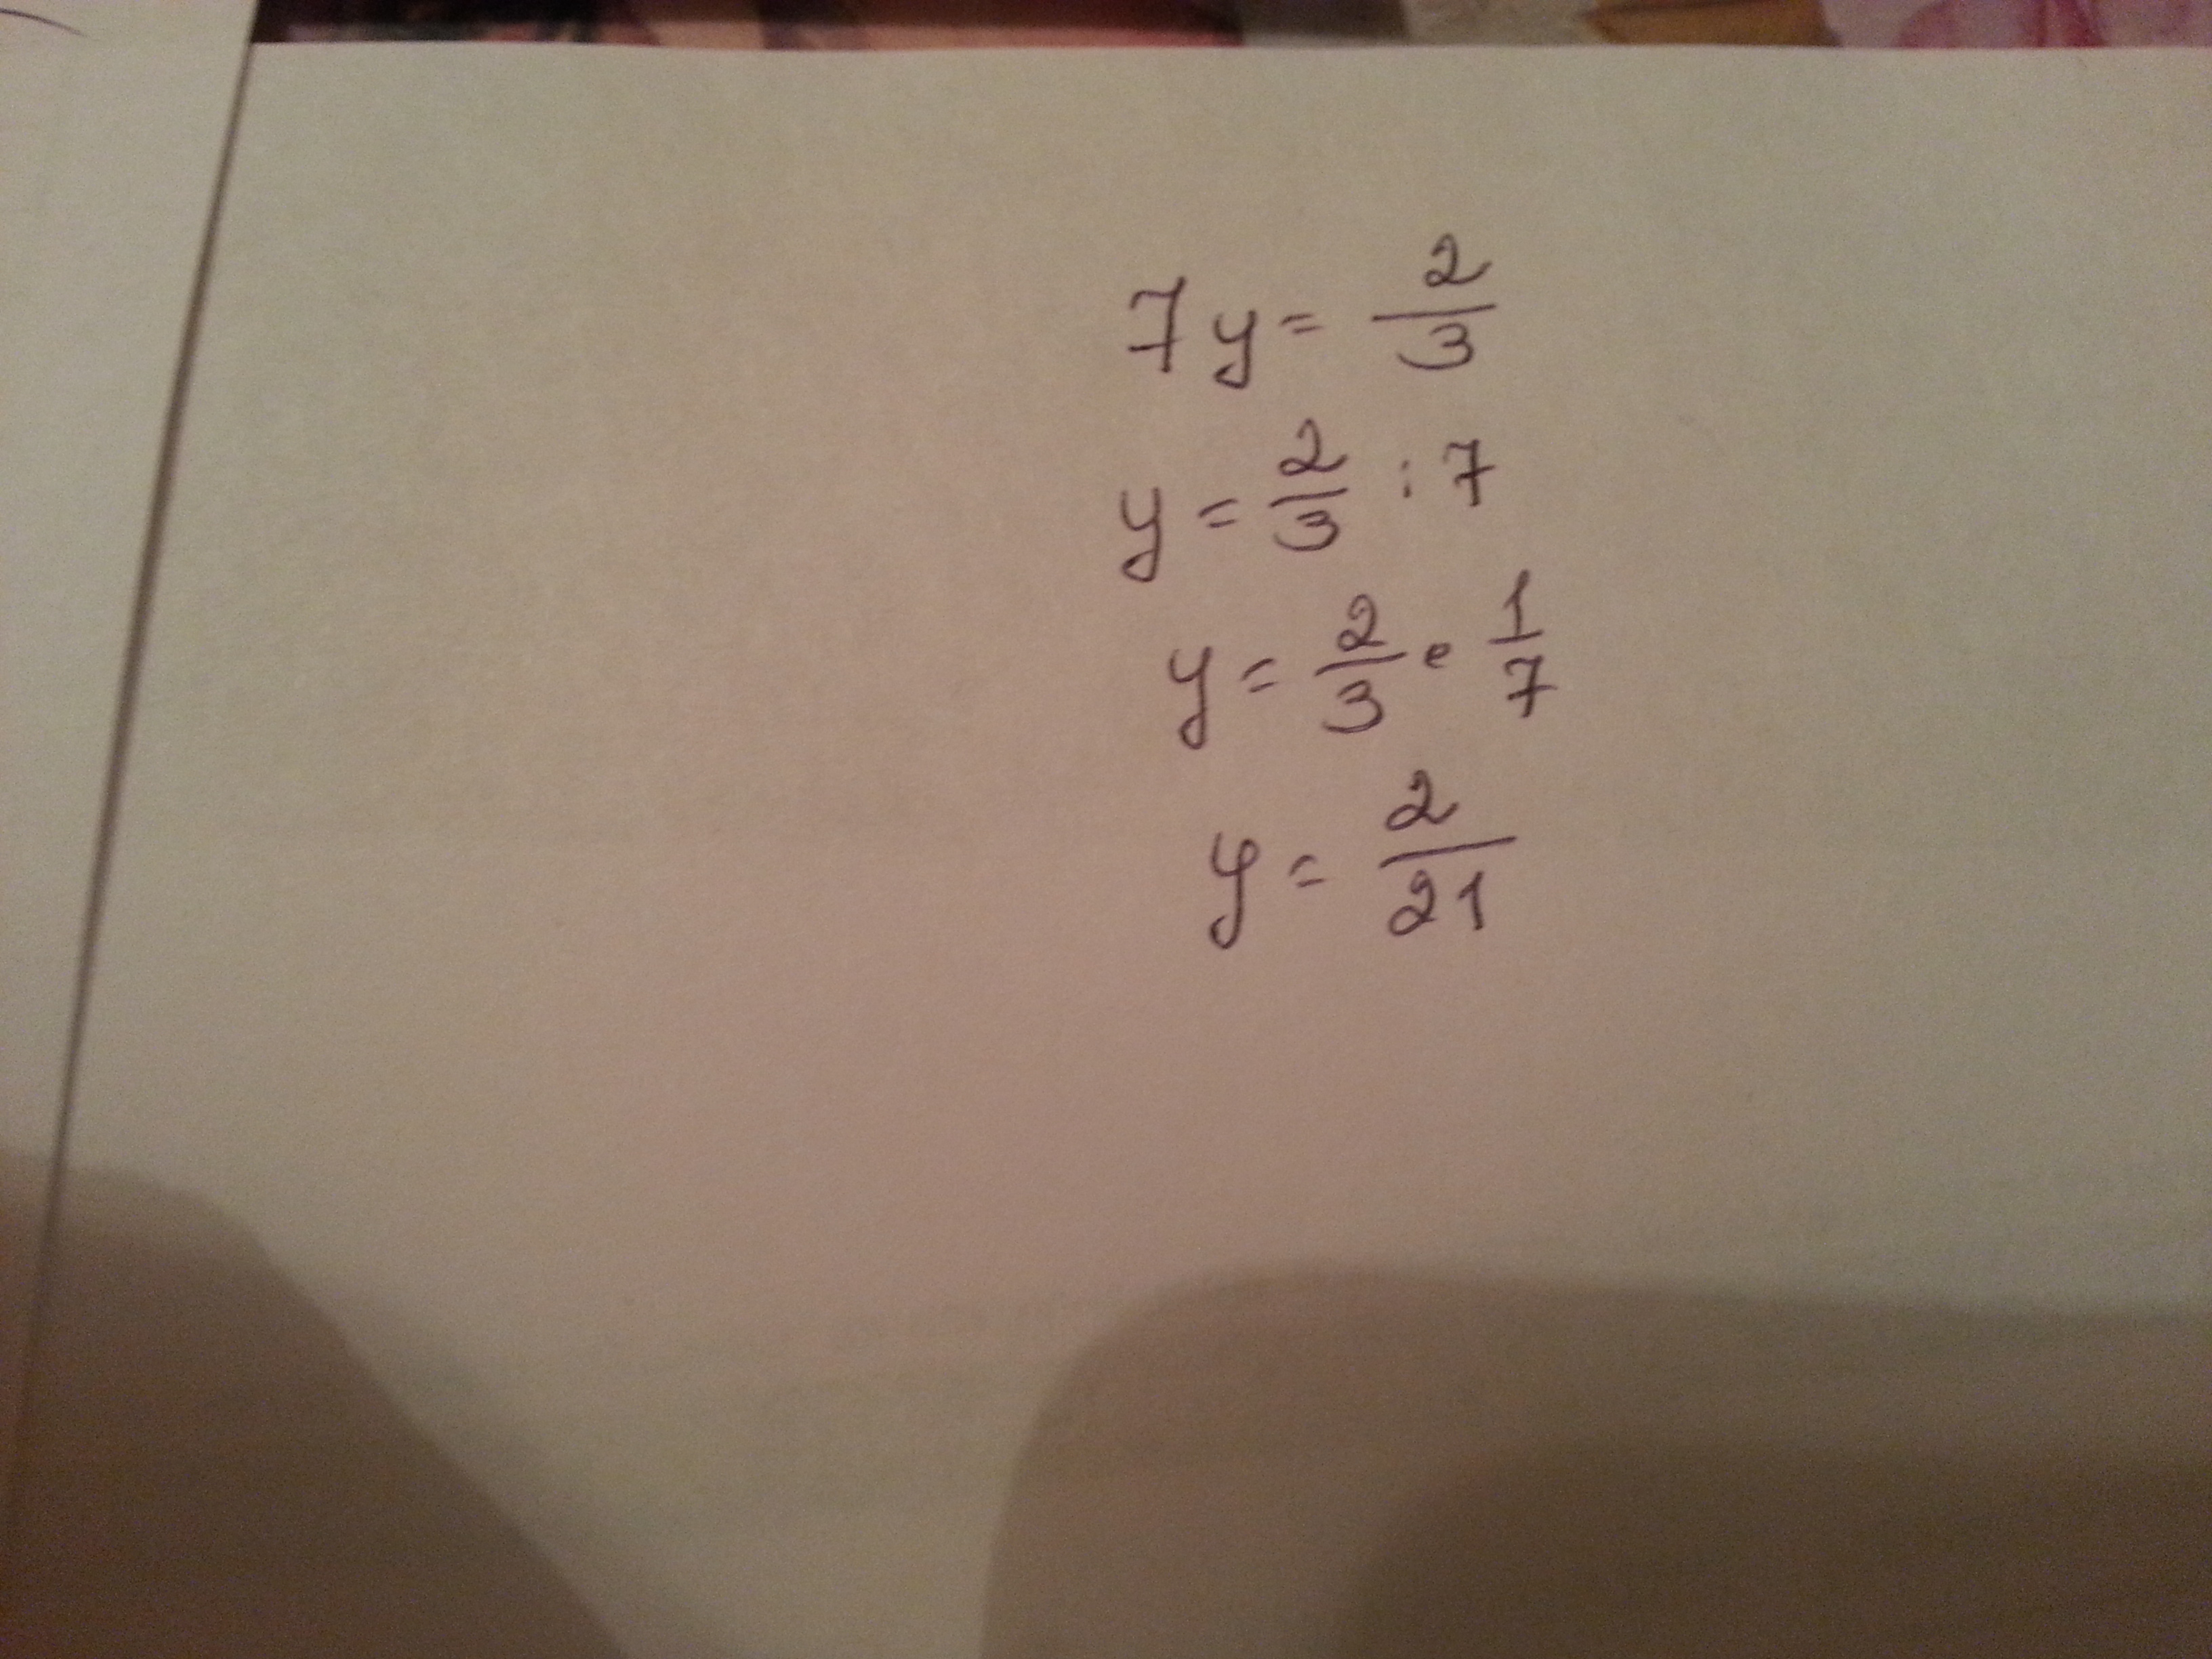 7y = 2/3
y = 2/3 : 7
y = 2/3 · 1/7
y = 2/21